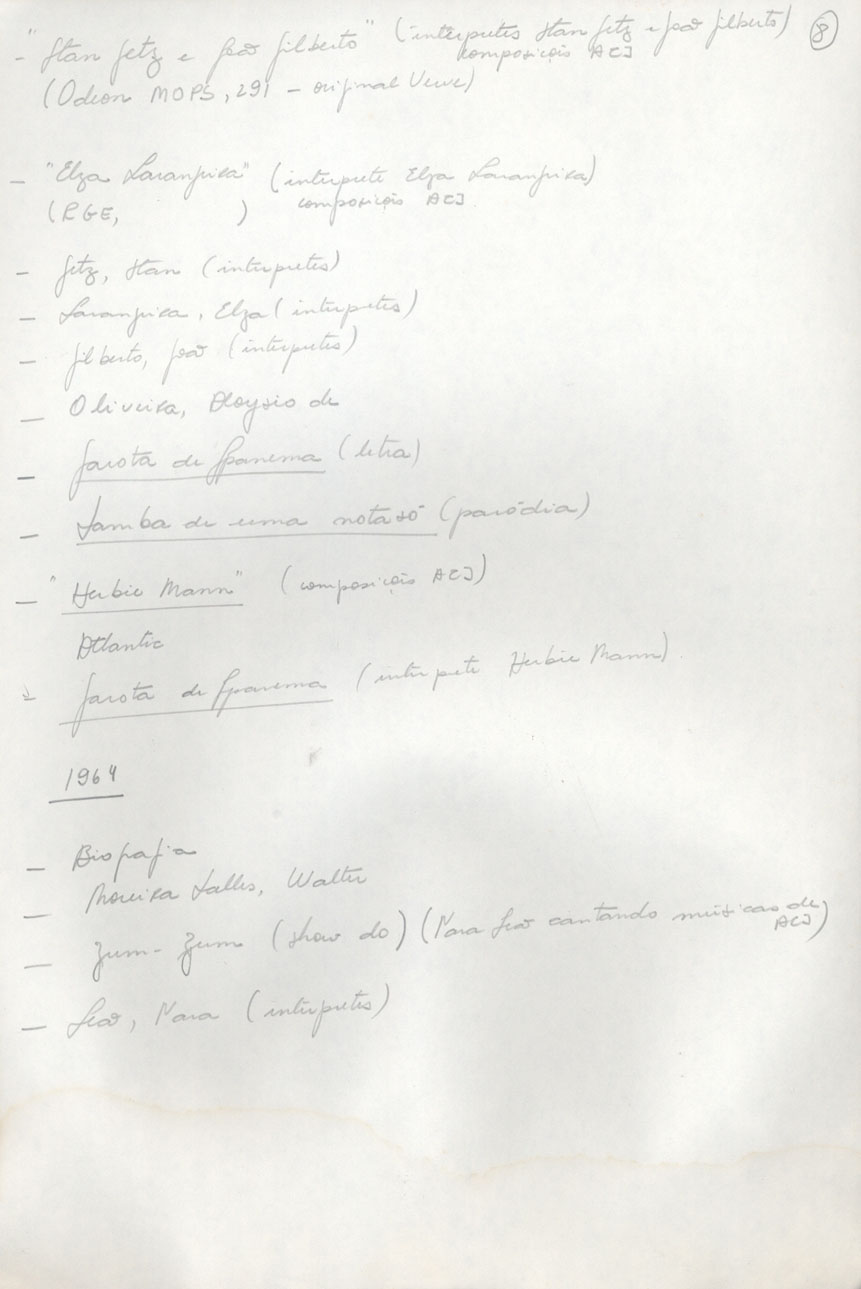 - "Stan Getz e João Gilberto" (intérpretes Stan Getz e João Gilberto) 8
composições ACJ
(Odeon MOPS, 291 - original Verve)
- "Elza Laranjeira" (intérprete Elza Laranjeira)
(RGE, ) composições ACJ
- Getz, Stan (intérpretes)
- Laranjeira, Elza (intérpretes)
- Gilberto, João (intérpretes)
- Oliveira, Aloysio de
- Garota de Ipanema (letra)
- Samba de uma nota só (paródia)
- "Herbie Mann" (composições ACJ)
Atlantic
- Garota de Ipanema (intérprete Herbie Mann)
1964
- Biografia
- Moreira Salles, Walter
- Zum-Zum (show do) (Nara Leão cantando músicas de
ACJ)
- Leão, Nara (intérpretes)